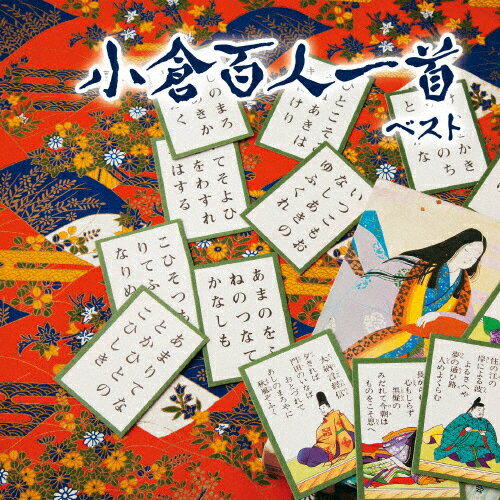 小倉百人一首
ベスト
しのまろ
く
ひとこそ
あきは
けり
かき
のち
な
と
てそよひ
をわすれ
はする
いつこもお
なしあきの
ゆふくれ
こひそつ
りてふ
なりぬ
あまのを
ねのつなて
かなしも
あまりてな
とかひとの
こひしき
大納言経信
夕されば
門田のいなば
おとづれて
あしのまろやに
秋風ぞふく
長から
心もしらず
黒髪の
みだれて今朝は
ものをこそ思へ
住の江
岸による波
よるさへや
夢の通ひ路
人めよくらむ